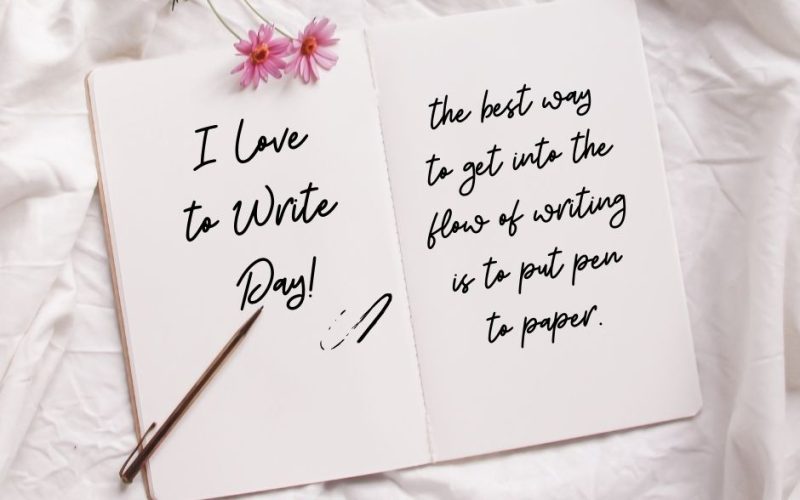 I Love
to Write
Day!
the best way
to get into the
flow of writing
is to put pen
to paper.